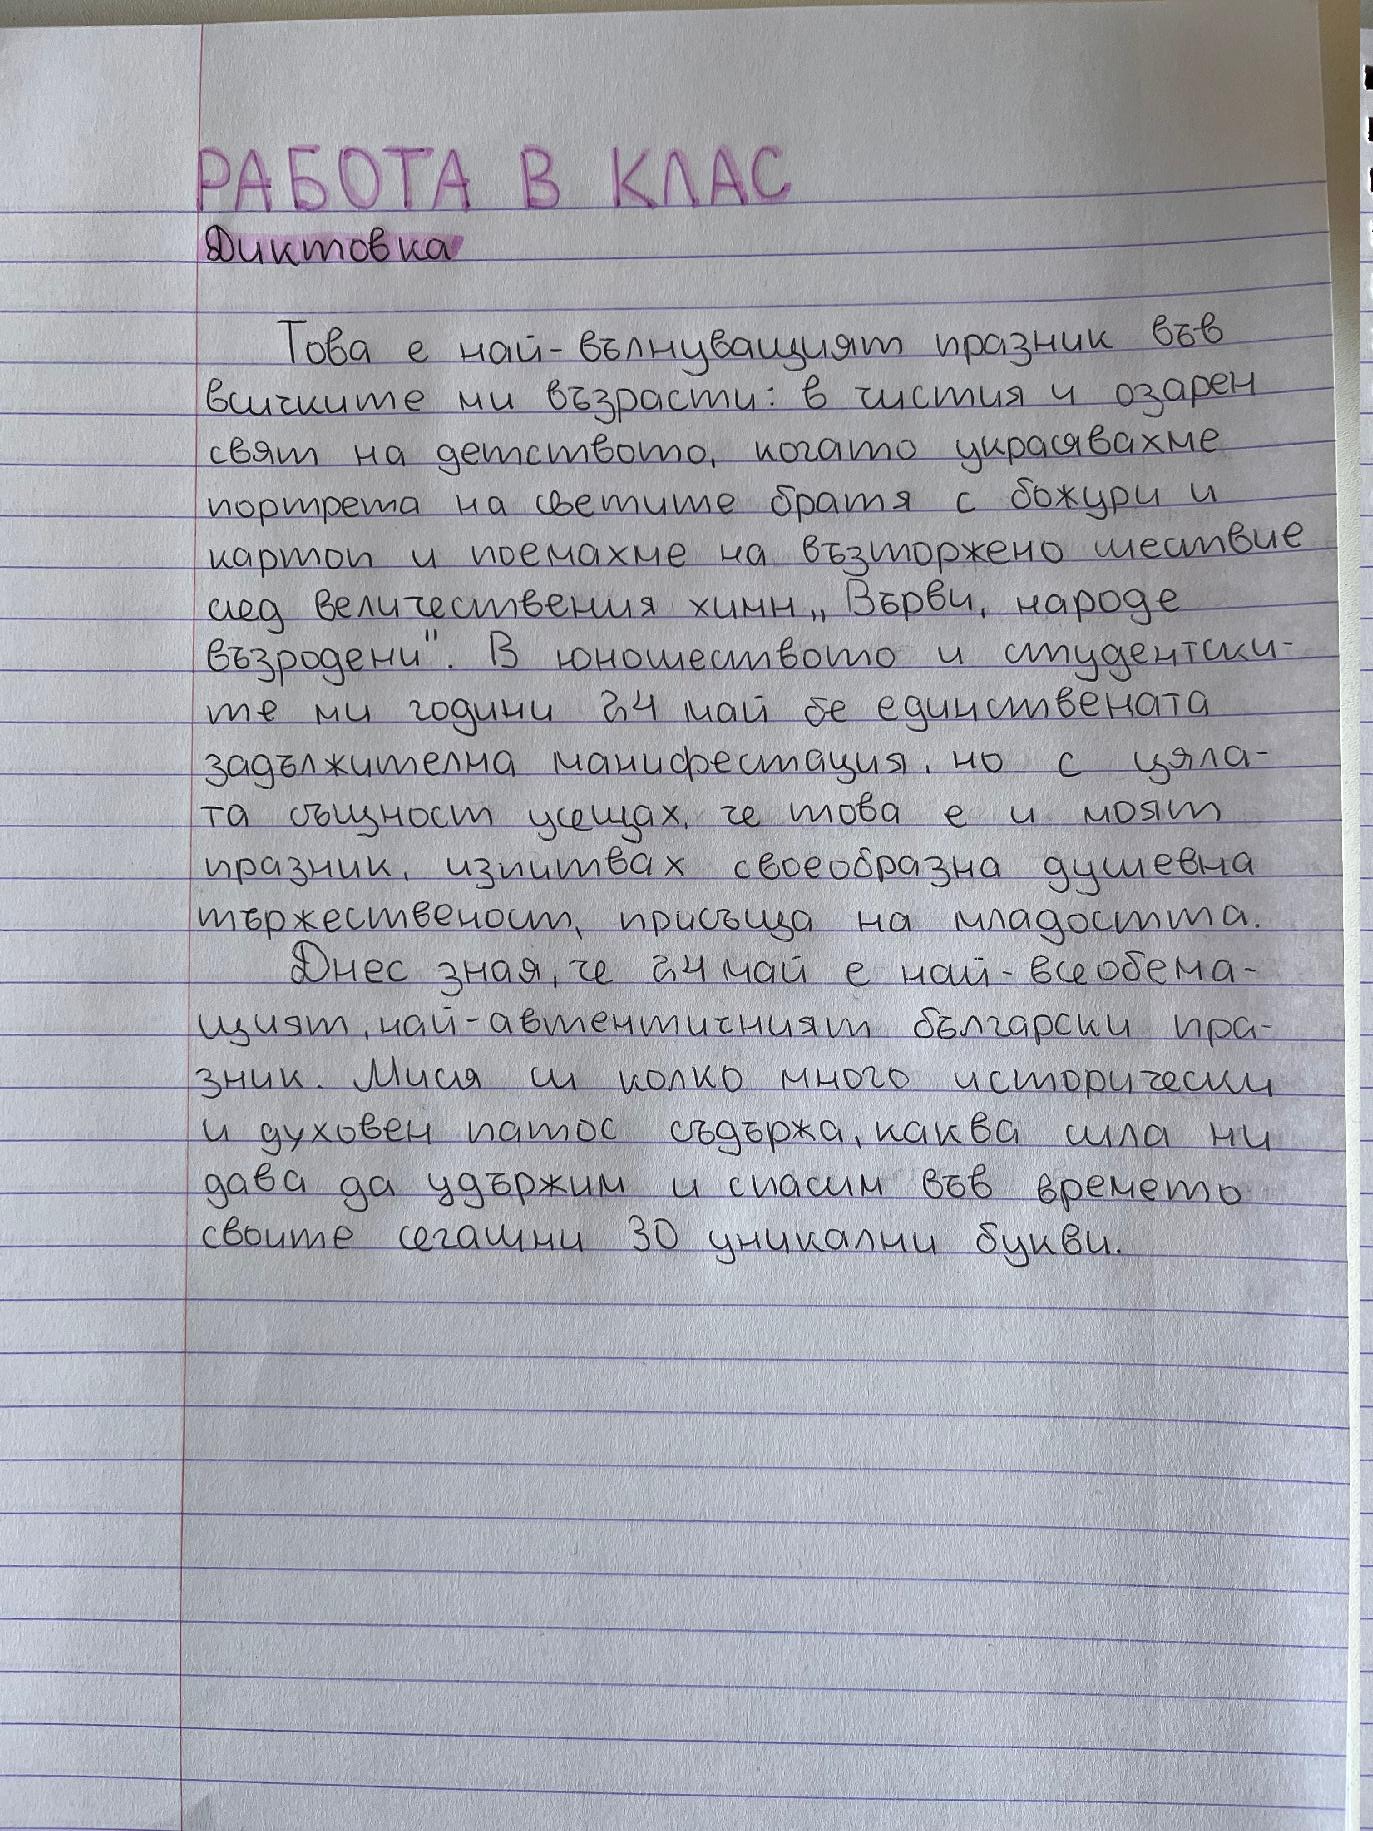 РАБОТА В КЛАС
Диктовка
Това е най-вълнуващият празник във
всичките ми възрасти: в чистия и озарен
свят на детството, когато украсявахме
портрета на светите братя с божури и
картоп и поемахме на възторжено шествие
след величествения химн „Върви, народе
възродени". В юношеството и студентски-
те ми години 24 май бе единствената
задължителна манифестация, но с цяла-
та същност усещах, че това е и моят
празник, изпитвах своеобразна душевна
тържественост, присъща на младостта.
Днес зная, че 24 май е най-всеобема-
щият, най-автентичният български пра-
зник. Мисля си колко много исторически
и духовен патос съдържа, каква сила ни
дава да удържим и спасим във времето
своите сегашни 30 уникални букви.